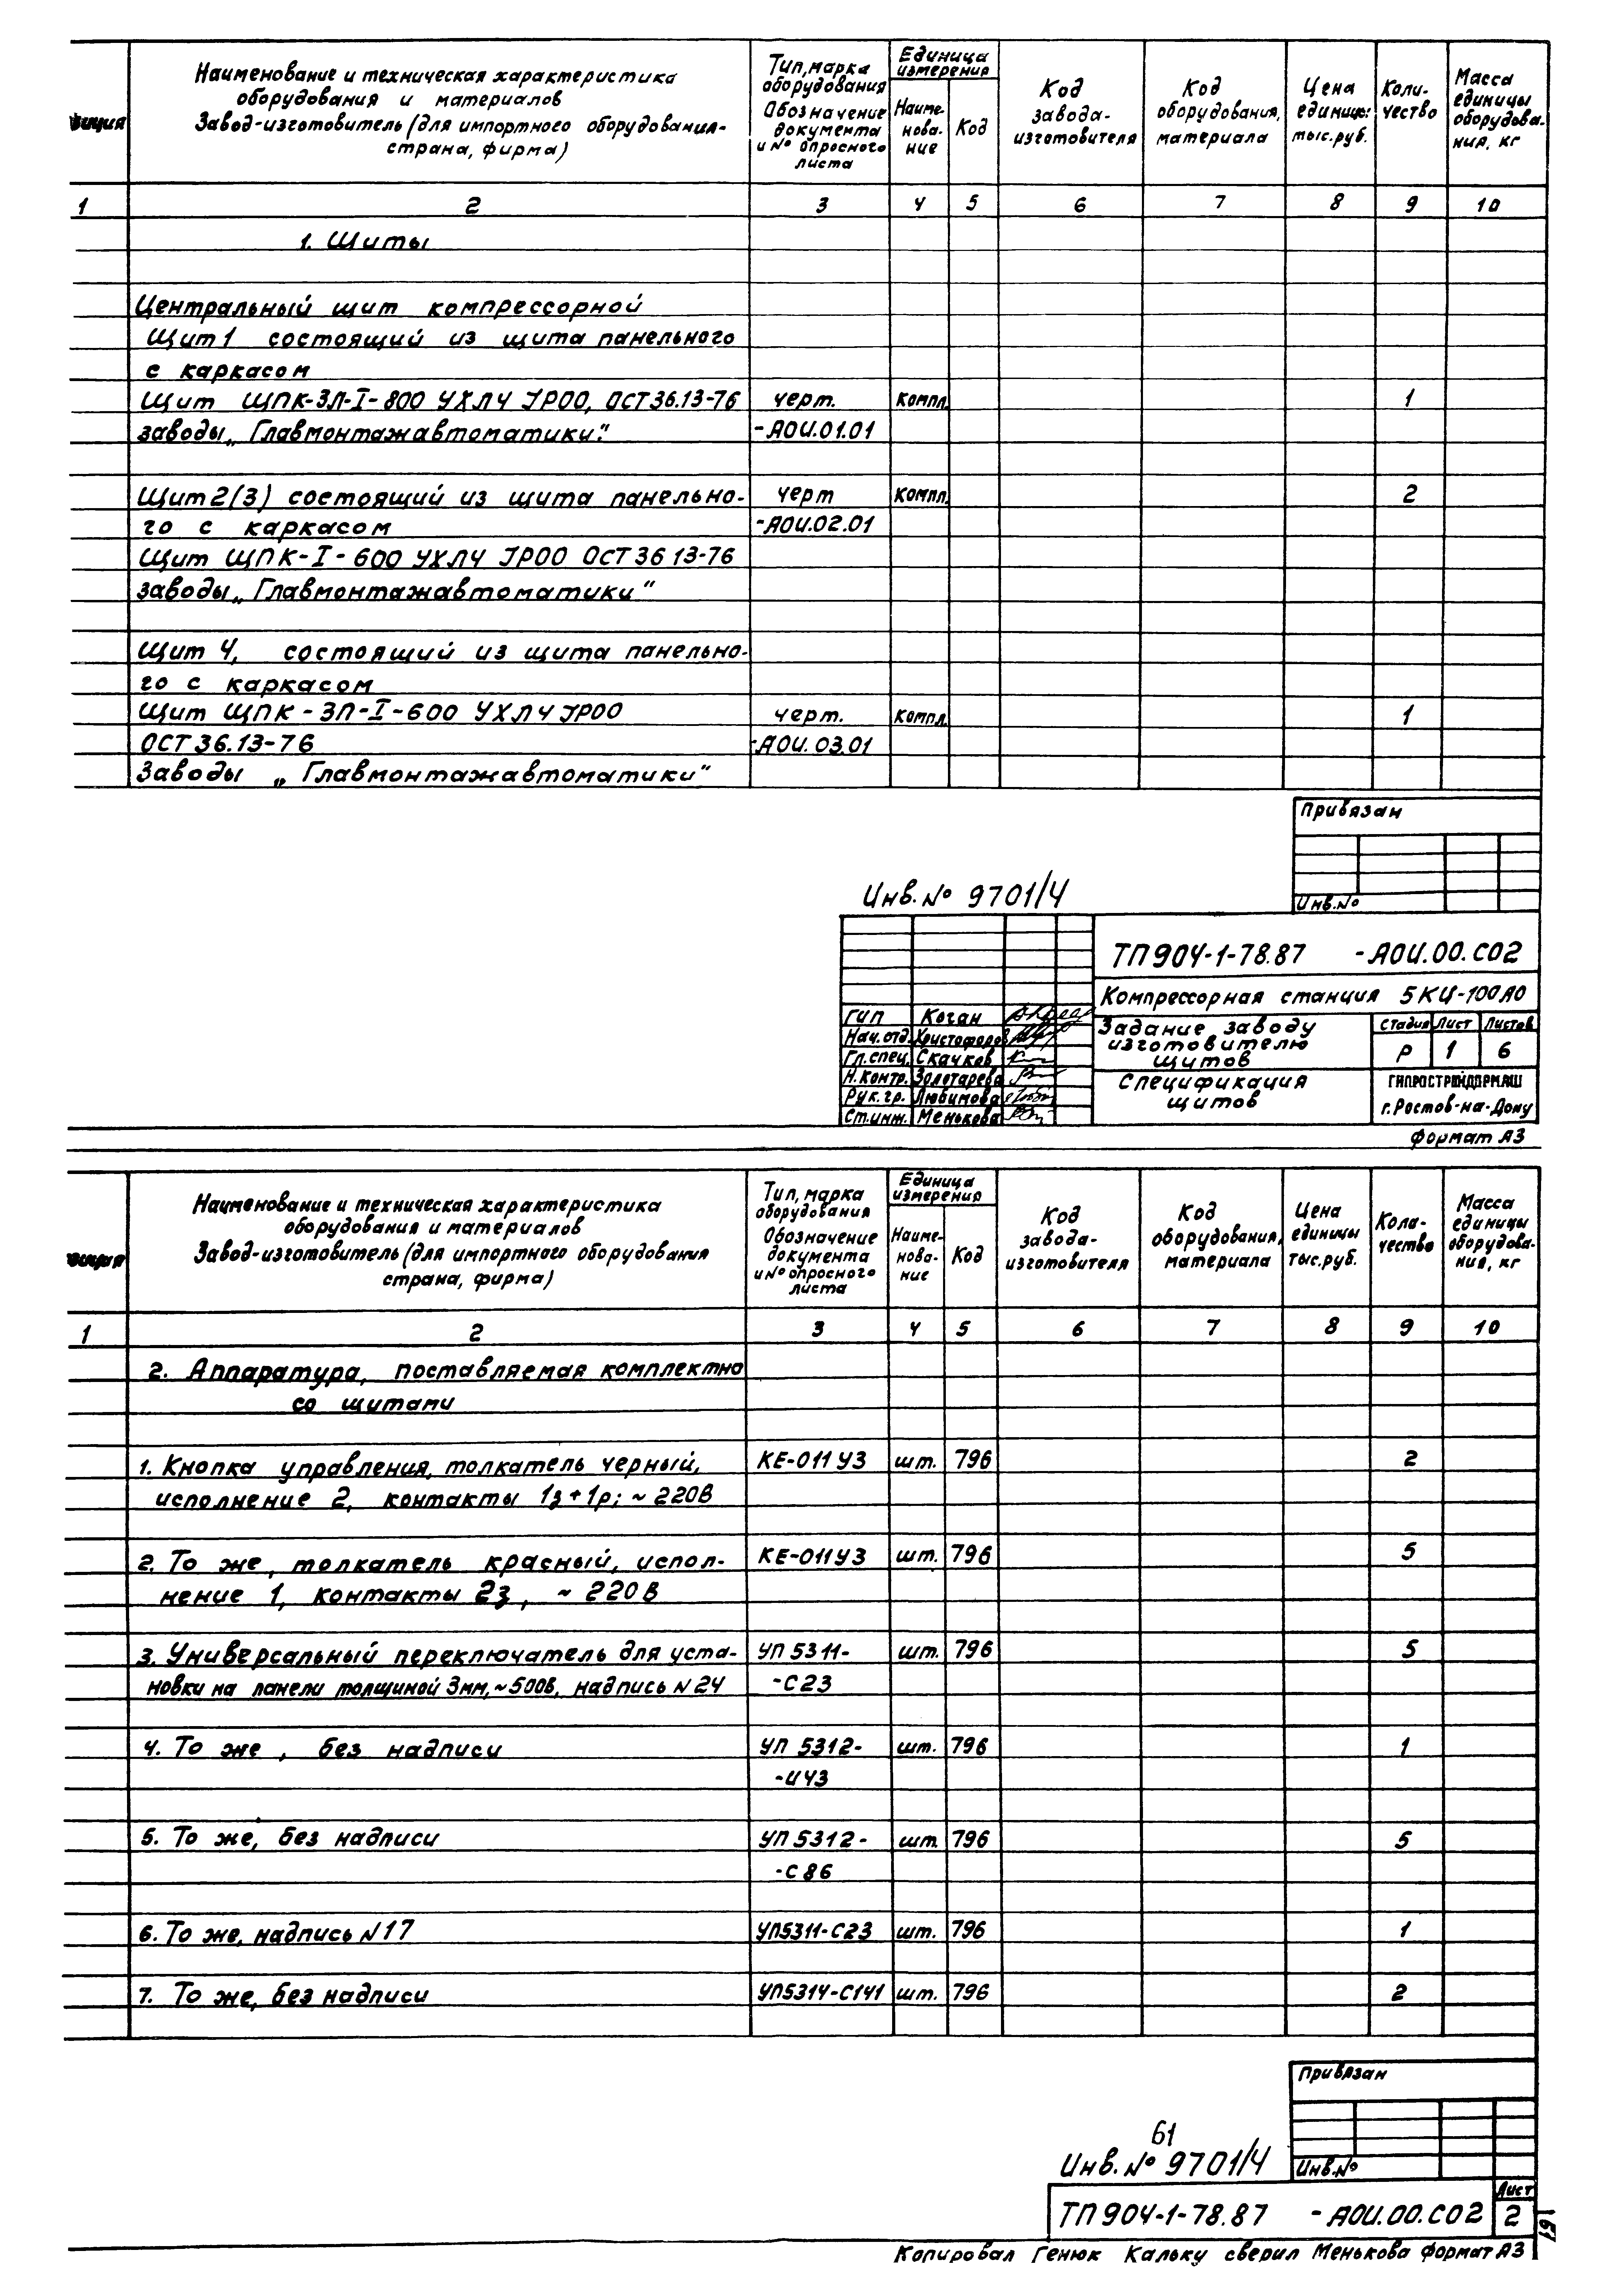 Наименование и техническая характеристика
оборудования и материалов
Завод-изготовитель (для импортного оборудования-
страна, фирма)
Тип, марка
оборудования
Обозначение
документа
и № опросного
листа
Единица
измерения
Наиме-
нова-
ние
Код
Код
завода-
изготовителя
Код
оборудования,
материала
Цена
единицы
тыс.руб.
Коли-
чество
Масса
единицы
оборудова-
ния, кг
1 2 3 4 5 6 7 8 9 10
1. Щиты
Центральный щит компрессорной
Щит 1 состоящий из щита панельного
с каркасом
Щит ЩПК-ЗЛ-I-800 УХЛЧ IРОО, ОСТ 36.13-76 черт. компл. 1
заводы „Главмонтажавтоматики". -АОИ.01.01
Щит 2(3) состоящий из щита панельно- черт компл. 2
го с каркасом -АОИ.02.01
Щит ЩПК-I-600 УХЛЧ IРОО ОСТ 36 13-76
заводы „Главмонтажавтоматики"
Щит 4, состоящий из щита панельно-
го с каркасом
Щит ЩПК-ЗП-I-600 УХЛЧ IРОО черт. компл. 1
ОСТ 36.13-76 -АОИ.03.01
Заводы „Главмонтажавтоматики"
Привязан
Инв.№
Инв.№ 9701/4
ТП 904-1-78.87 -АОИ.00.СО2
Компрессорная станция 5КЦ-100А0
ГИП Коган
Нач.отд. Христофоров
Гл.спец. Скачков
Н.контр. Золотарева
Рук.гр. Любимова
Ст.инж. Менькова
Задание заводу
изготовителю
щитов
Стадия Лист Листов
Р 1 6
Спецификация
щитов
ГИПРОСТРОЙДОРМАШ
г.Ростов-на-Дону
формат А3
Наименование и техническая характеристика
оборудования и материалов
Завод-изготовитель (для импортного оборудования
страна, фирма)
Тип, марка
оборудования
Обозначение
документа
и № опросного
листа
Единица
измерения
Наиме-
нова-
ние
Код
Код
завода-
изготовителя
Код
оборудования,
материала
Цена
единицы
тыс.руб.
Коли-
чество
Масса
единицы
оборудова-
ния, кг
1 2 3 4 5 6 7 8 9 10
2. Аппаратура, поставляемая комплектно
со щитами
1. Кнопка управления, толкатель черный, КЕ-011 У3 шт. 796 2
исполнение 2, контакты 1з+1р; ~ 220В
2. То же, толкатель красный, испол- КЕ-011У3 шт. 796 5
нение 1, контакты 2з, ~ 220В
3. Универсальный переключатель для уста- УП 5311- шт. 796 5
новки на панели толщиной 3мм, ~500В, надпись N 24 -С23
4. То же, без надписи УП 5312- шт. 796 1
-И43
5. То же, без надписи УП 5312- шт. 796 5
-С86
6. То же, надпись N 17 УП5311-С23 шт. 796 1
7. То же, без надписи УП5314-С141 шт. 796 2
Привязан
Инв.№
61
Инв.№ 9701/4
ТП 904-1-78.87 -АОИ.00.СО2
Лист
2
Копировал Генюк Кальку сверил Менькова формат А3